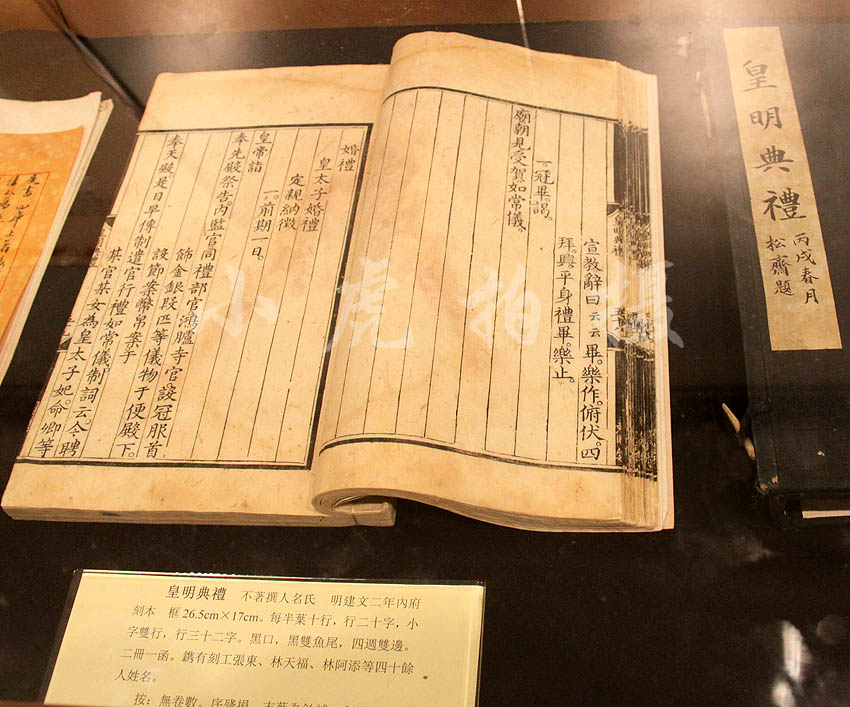 宣教辭曰云云畢。樂作。俯伏。四
拜。興平身禮畢。樂止。
一。冠畢。謁。
廟朝見受賀如常儀。
婚禮
皇太子婚禮
定親納徵
一。前期一日。
皇帝詣
奉先殿祭告。內監官同禮部官鴻臚寺官設冠服首
飾金銀叚匹等儀物于便殿下。
設節案幣帛案于
奉天殿。是日早傳制遣官行禮如常儀。制詞云。今聘
某官某女為皇太子妃。命卿等
皇明典禮
丙戌春月
松齋題
小虎拍摄
皇明典禮 不著撰人名氏 明建文二年內府
刻本 框26.5cm×17cm。每半葉十行，行二十字，小
字雙行，行三十二字。黑口，黑雙魚尾，四週雙邊。
二冊一函。鐫有刻工張東、林天福、林阿添等四十餘
人姓名。
按：無卷數。序殘損